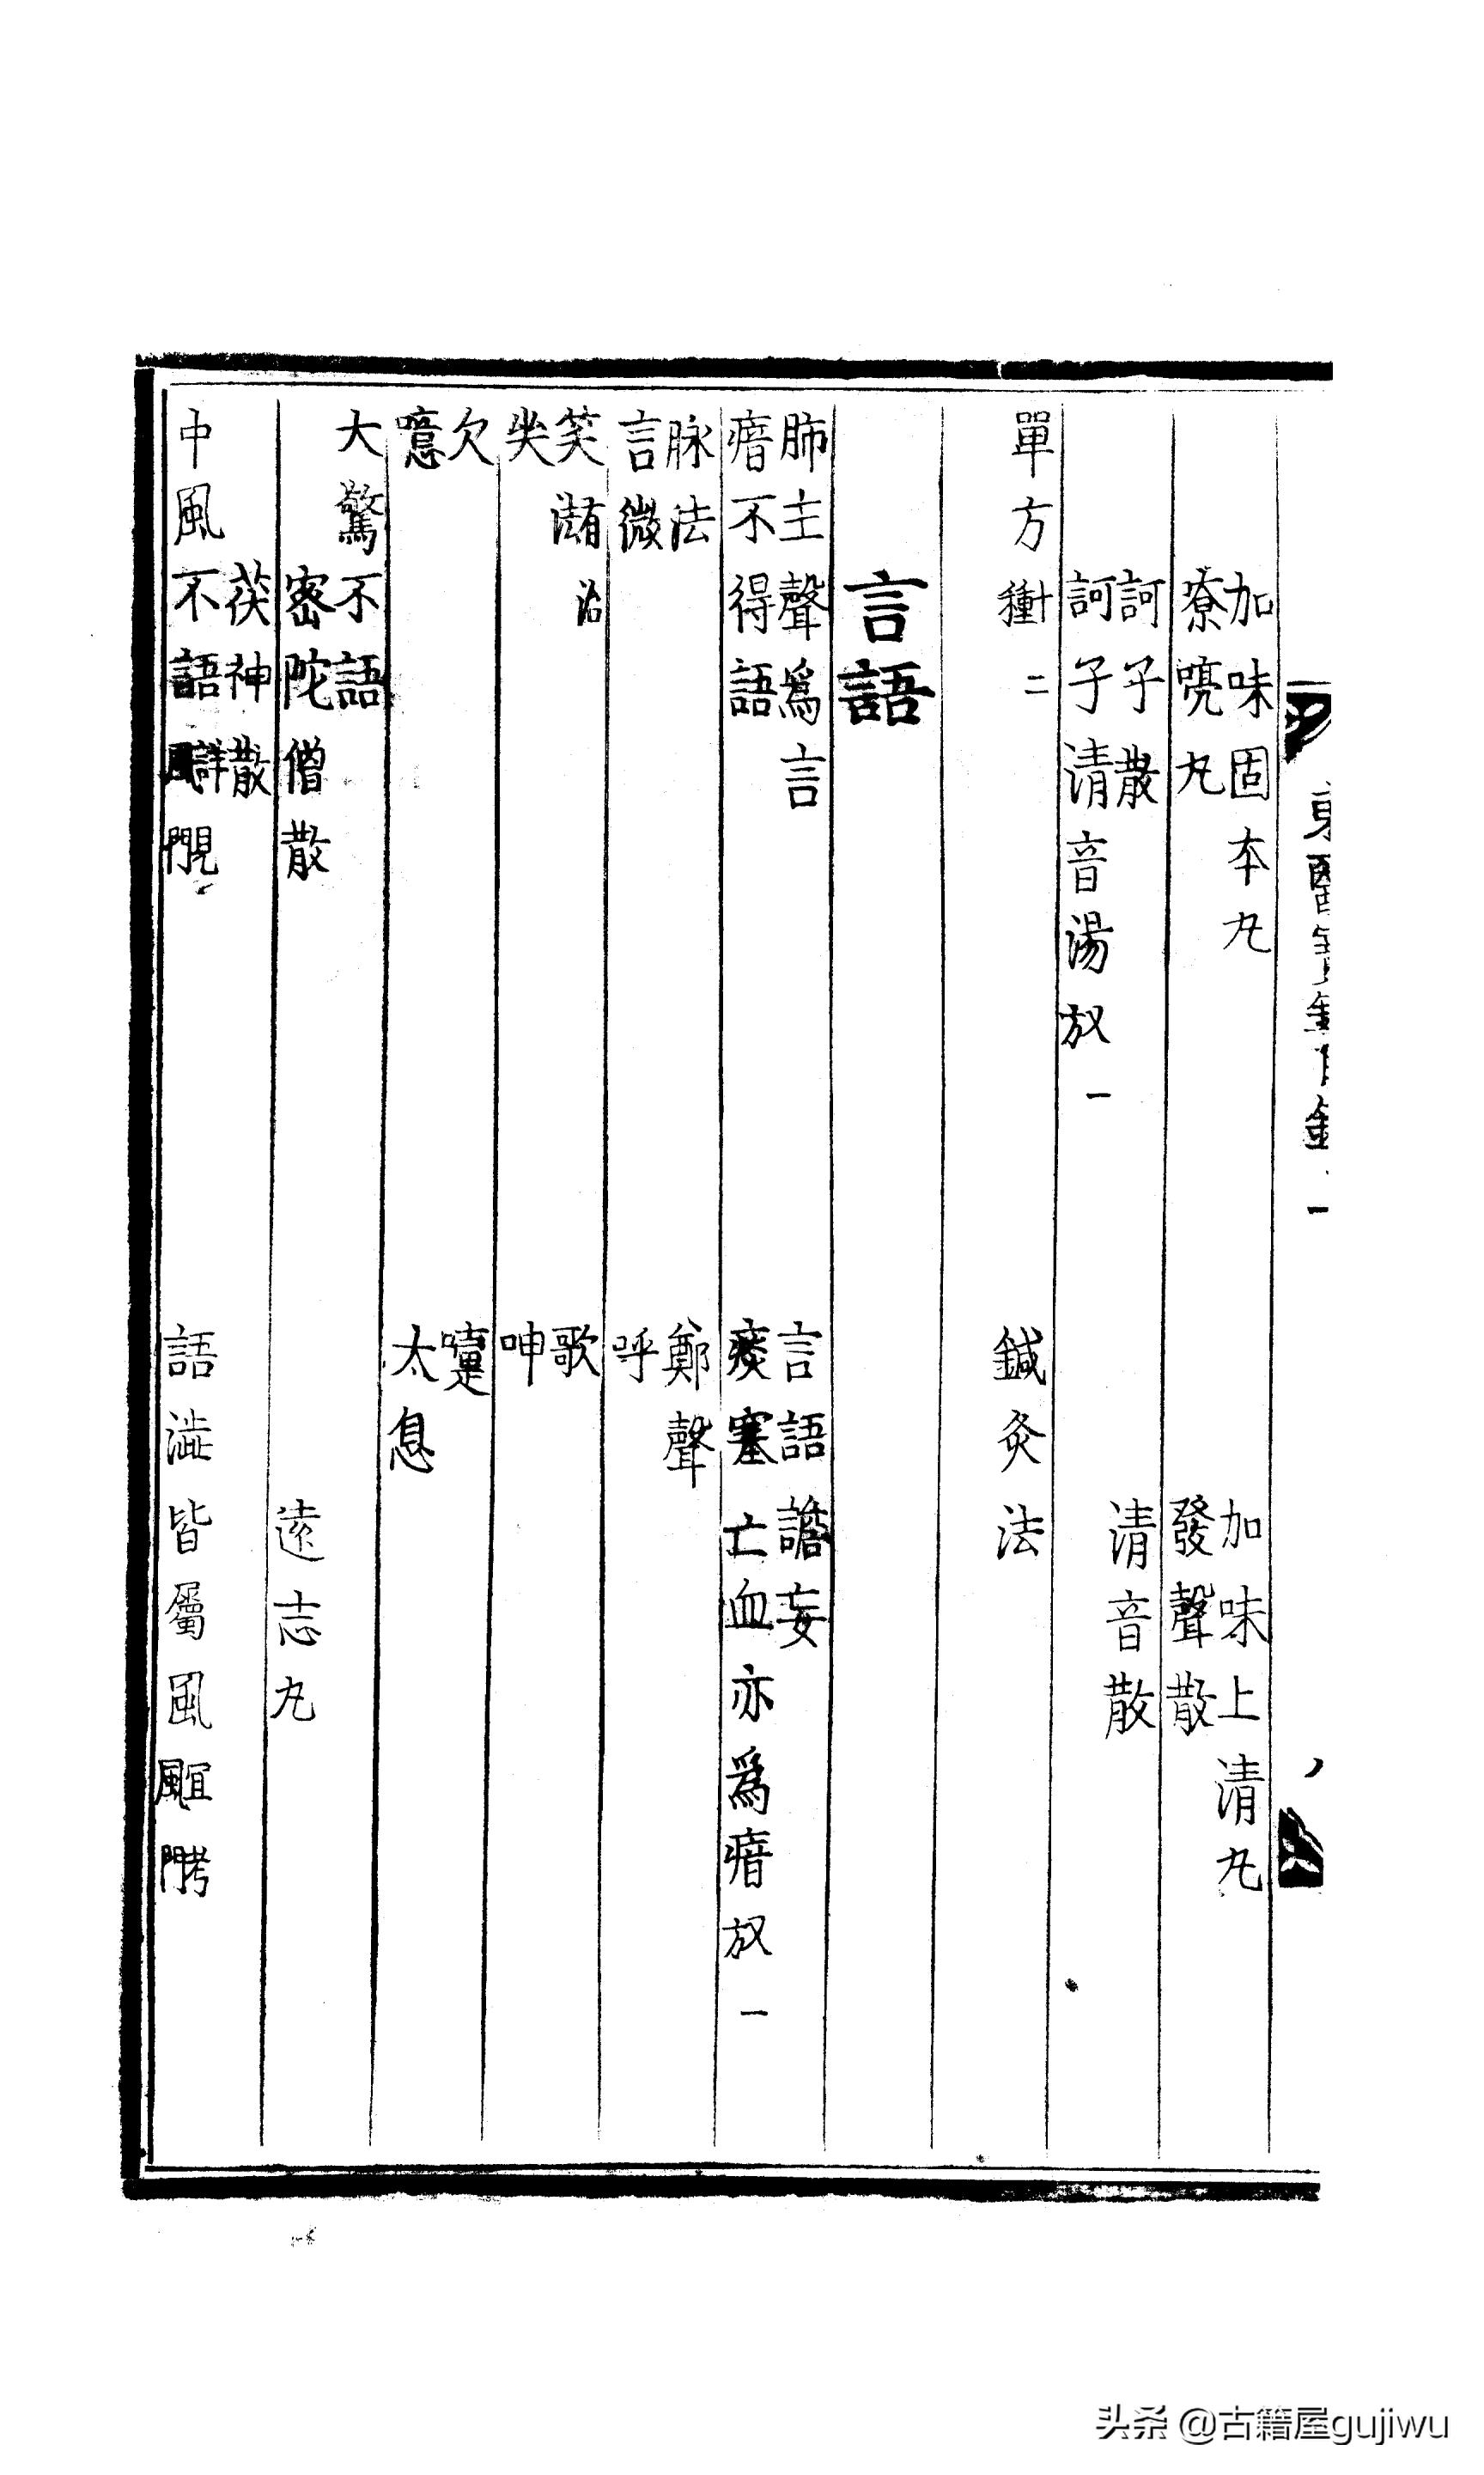 東醫寶鑑目錄 一
加味固本丸 加味上清丸
嘹喨丸 發聲散
訶子散 清音散
訶子清音湯 放一
單方 二十種 鍼灸法
言語
肺主聲爲言 言語譫妄
瘖不得語 痰塞亡血亦爲瘖 放一
脉法 鄭聲
言微 呼
笑 有治法 歌
哭 呻
欠 嚏
噫 太息
大驚不語
密陀僧散 遠志丸
茯神散
中風不語 詳見風門 語澁皆屬風 宜考風門
头条 @古籍屋gujiwu